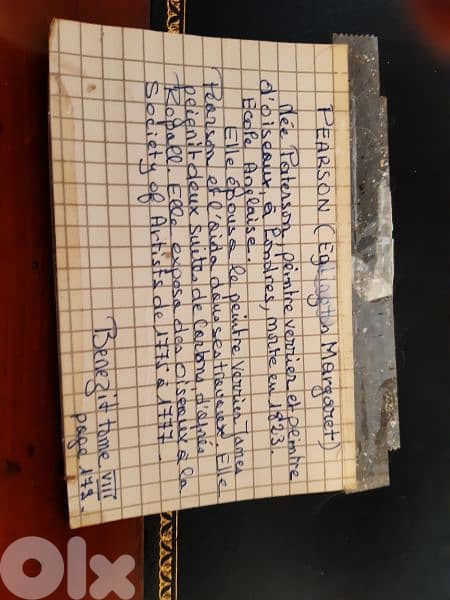 PEARSON (Eglington Margaret)
Née Paterson, peintre verrier et peintre
d'oiseaux, à Londres, morte en 1823.
Ecole Anglaise.
Elle épousa le peintre verrier James
Pearson et l'aida dans ses travaux. Elle
peignit deux suites de Cartons d'après
Elle exposa des oiseaux à la
Society of Artists de 1775 à 1777.
Benezit tome VIII
page 173.
Olx